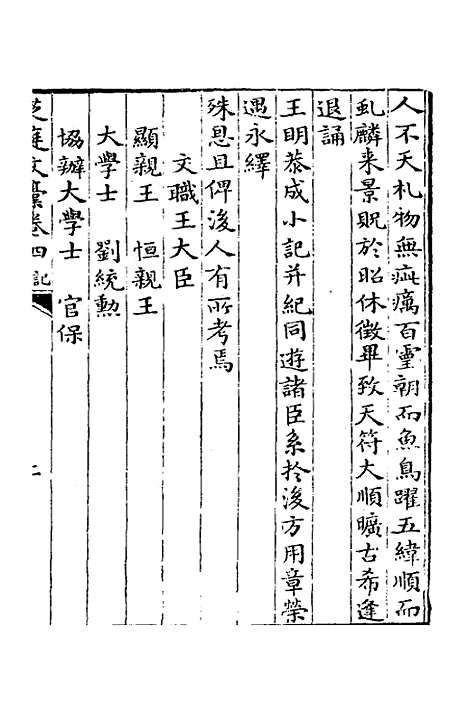 人不夭札物無疵癘百靈朝而魚鳥躍五緯順而
虬麟来景貺於昭休徵畢致天符大順曠古希逢
退誦
王明恭成小記并紀同遊諸臣系扵後方用章榮
遇永繹
殊恩且俾後人有所考焉
文職王大臣
顯親王　恒親王
大學士　劉統勲
協辦大學士　官保
芝庭文稾卷四　記
二